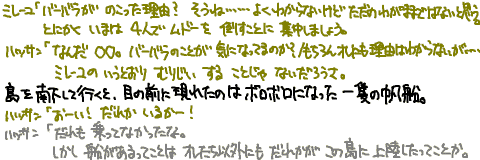 ミレーユ「バーバラが のこった理由? そうね……よくわからないけど ただのわがままではないと思う
とにかく いまは 4人で ムドーを 倒すことに 集中しましょう。
ハッサン「なんだ ○○。バーバラのことが 気になってるのか? もちろんオレにも理由はわからないが…
ミレーユの いうとおり むりじい する ことじゃ ないだろうて。
島を南下して行くと、目の前に現れたのは ボロボロになった 一隻の帆船。
ハッサン「おーい! だれか いるかー!
ハッサン「だれも 乗ってなかったな。
しかし 船があるってことは オレたち以外にも だれかが この島に 上陸したってことか。